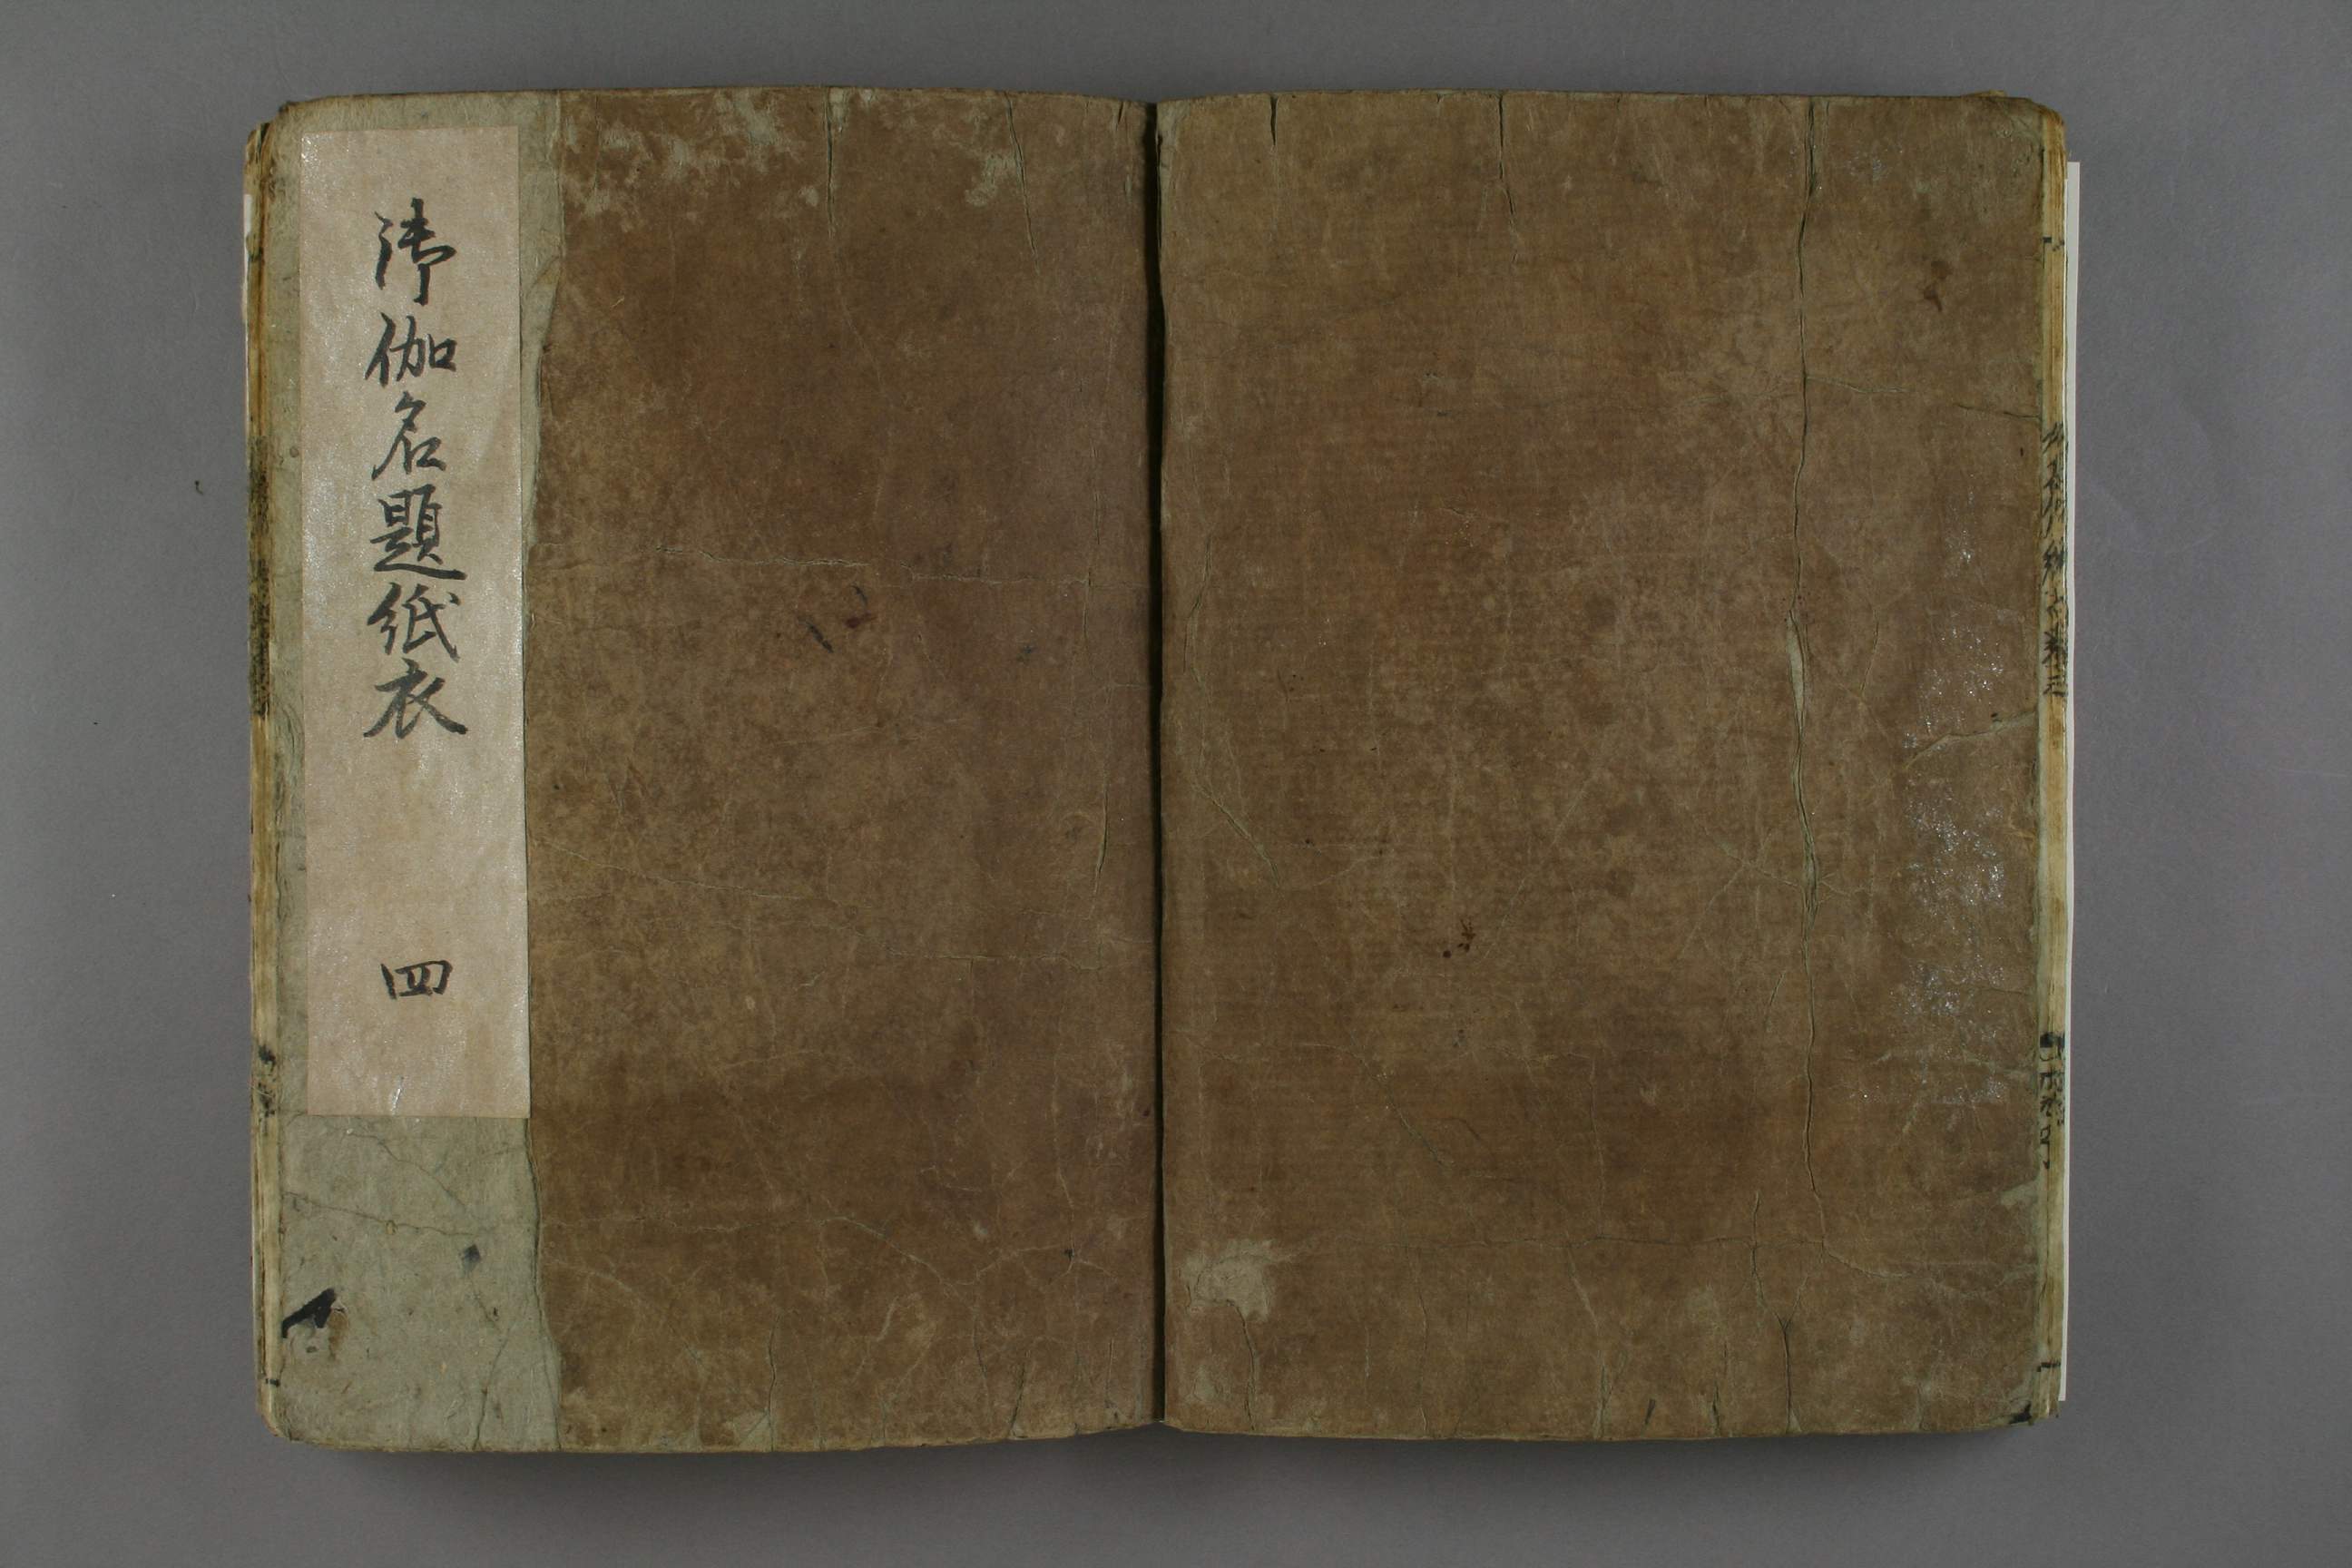 御伽名題紙衣
四